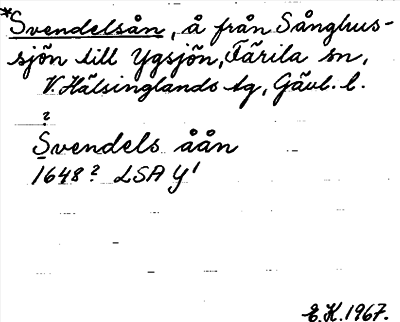 *Svendelsån, å från Sånghus-
sjön till Ygsjön, Färila sn,
V. Hälsinglands tg, Gävl. l.
?
Svendels åån
1648? LSA Y¹
E.H. 1967.